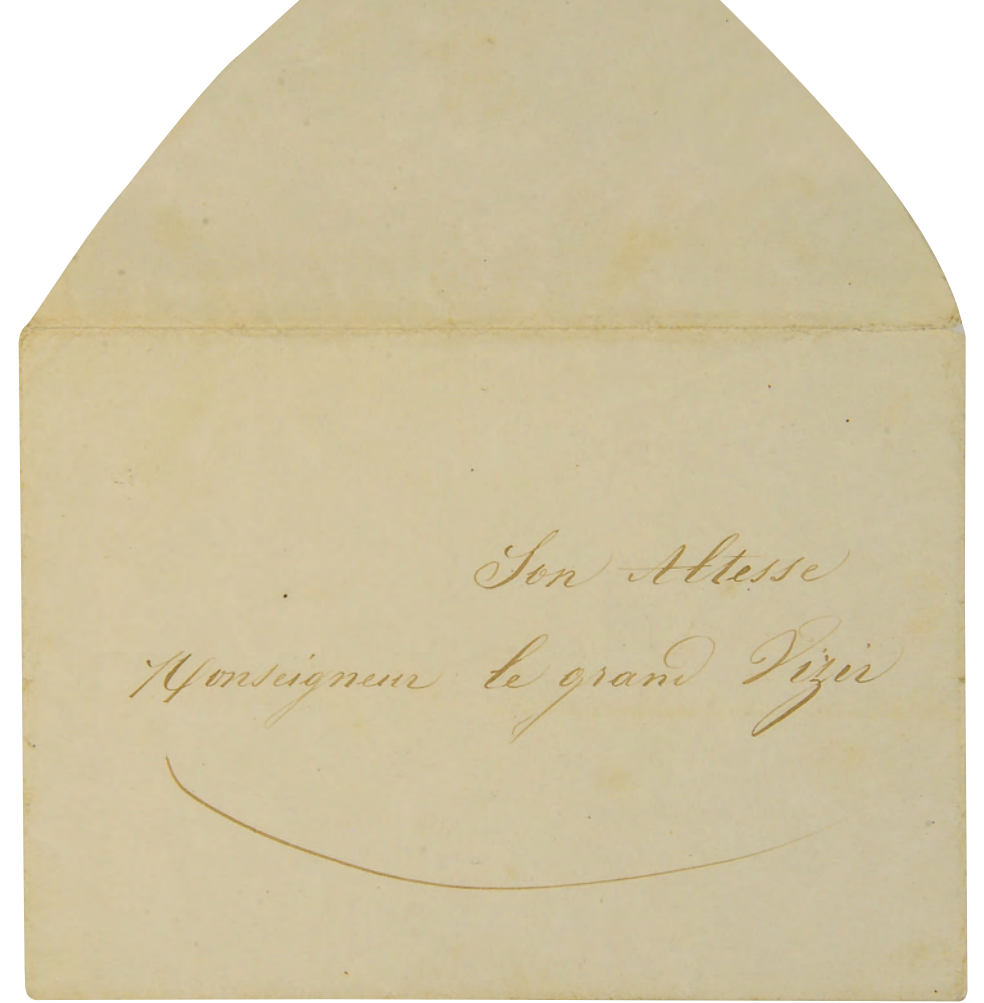 Son Altesse
Monseigneur le grand Vizir